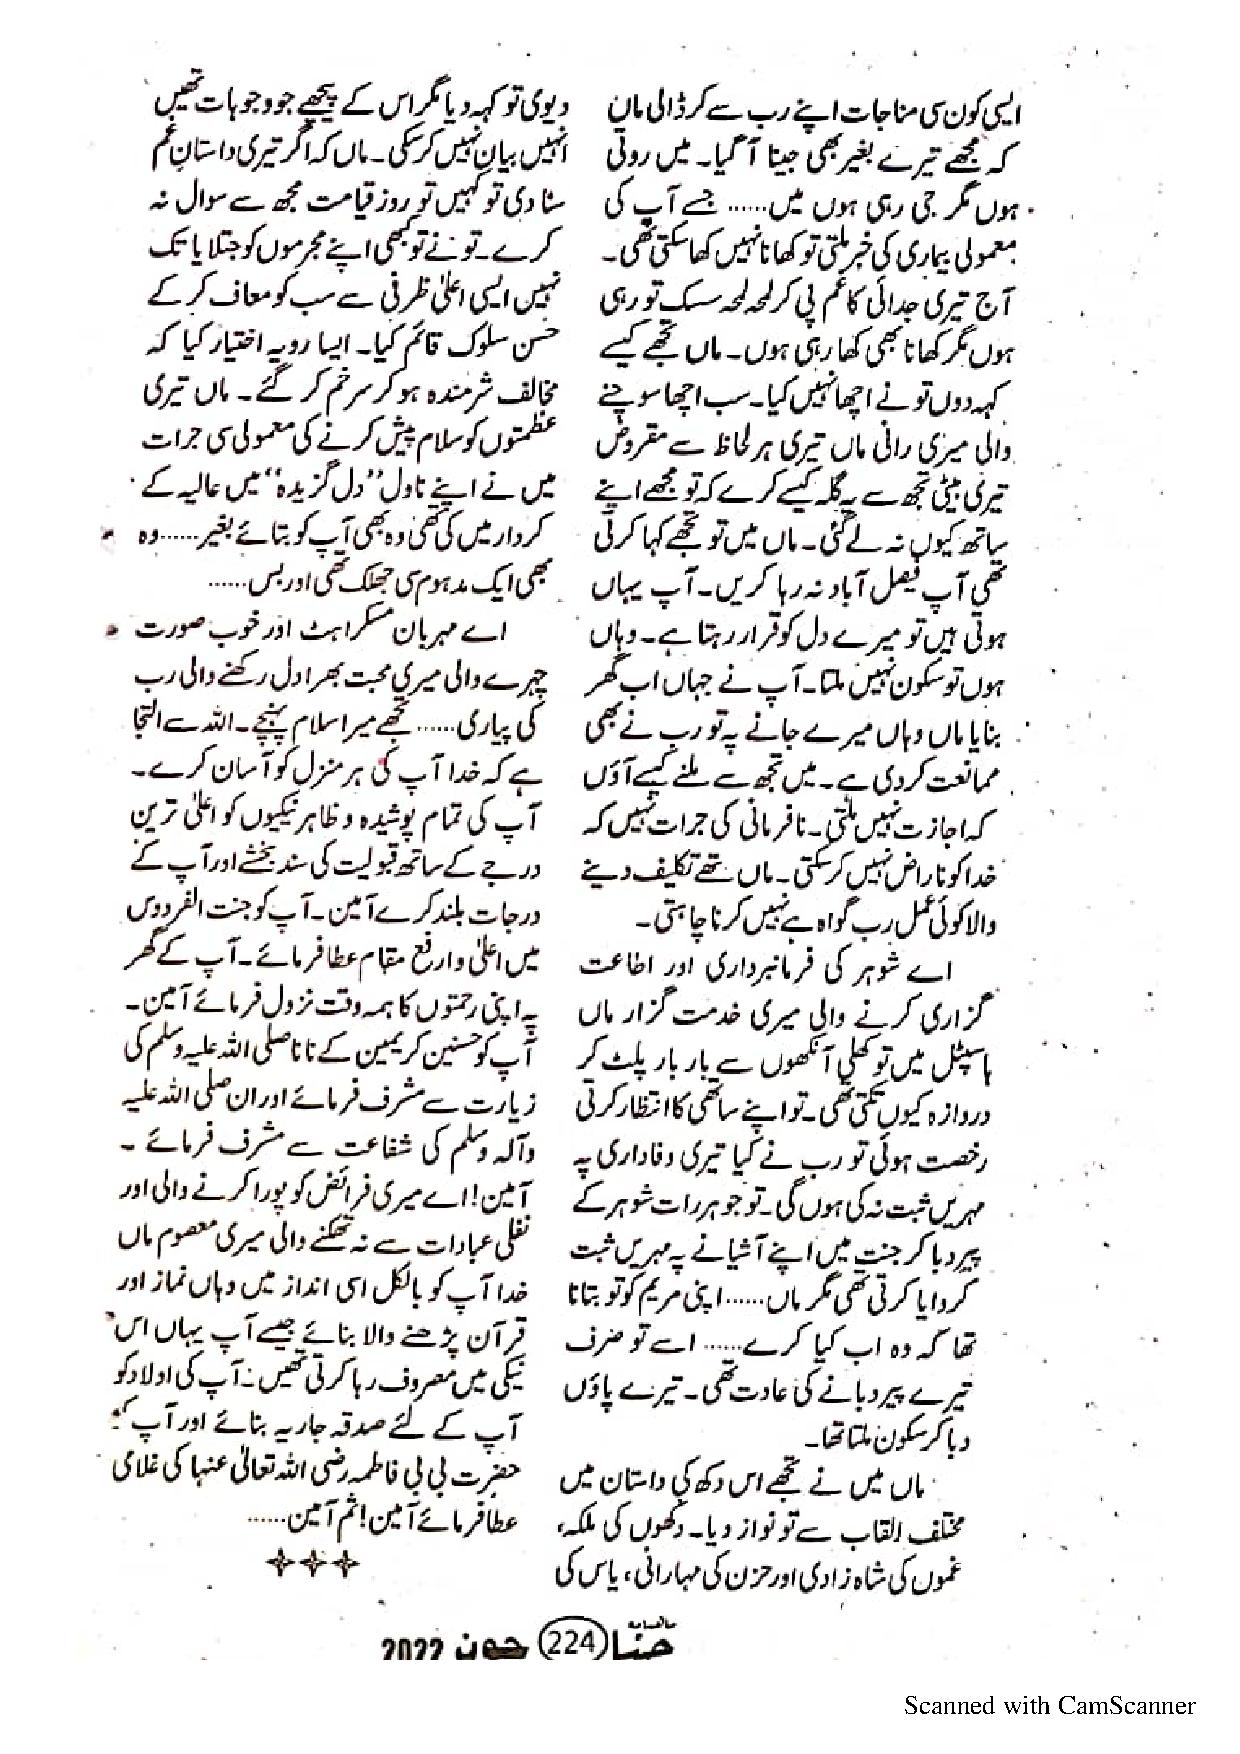 ایسی کون سی مناجات اپنے رب سے کر ڈالی ماں
کہ مجھے تیرے بغیر بھی جینا آ گیا۔ میں روتی
ہوں مگر جی رہی ہوں میں...... جسے آپ کی
معمولی بیماری کی خبر ملتی تو کھانا نہیں کھا سکتی تھی۔
آج تیری جدائی کا غم پی کر لمحہ لمحہ سسک تو رہی
ہوں مگر کھانا بھی کھا رہی ہوں۔ ماں تجھے کیسے
کہہ دوں تو نے اچھا نہیں کیا۔ سب اچھا سوچنے
والی میری رانی ماں تیری ہر لحاظ سے مقروض
تیری بیٹی تجھ سے یہ گلہ کیسے کرے کہ تو مجھے اپنے
ساتھ کیوں نہ لے گئی۔ ماں میں تو تجھے کہا کرتی
تھی آپ فیصل آباد نہ رہا کریں۔ آپ یہاں
ہوتی ہیں تو میرے دل کو قرار رہتا ہے۔ وہاں
ہوں تو سکون نہیں ملتا۔ آپ نے جہاں اب گھر
بنایا ماں وہاں میرے جانے پہ تو رب نے بھی
ممانعت کر دی ہے۔ میں تجھ سے ملنے کیسے آؤں
کہ اجازت نہیں ملتی۔ نافرمانی کی جرات نہیں کہ
خدا کو ناراض نہیں کر سکتی۔ ماں تجھے تکلیف دینے
والا کوئی عمل رب گواہ ہے نہیں کرنا چاہتی۔
اے شوہر کی فرمانبرداری اور اطاعت
گزاری کرنے والی میری خدمت گزار ماں
ہاسپٹل میں تو کھلی آنکھوں سے بار بار پلٹ کر
دروازہ کیوں تکتی تھی۔ تو اپنے ساتھی کا انتظار کرتی
رخصت ہوئی تو رب نے کیا تیری وفاداری پہ
مہریں ثبت نہ کی ہوں گی۔ تو جو ہر رات شوہر کے
پیر دبا کر جنت میں اپنے آشیانے پہ مہریں ثبت
کروایا کرتی تھی مگر ماں...... اپنی مریم کو تو بتانا
تھا کہ وہ اب کیا کرے...... اسے تو صرف
تیرے پیر دبانے کی عادت تھی۔ تیرے پاؤں
دبا کر سکون ملتا تھا۔
ماں میں نے تجھے اس دکھ کی داستان میں
مختلف القاب سے تو نواز دیا۔ دکھوں کی ملکہ،
غموں کی شاہ زادی اور حزن کی مہارانی، یاس کی
دیوی تو کہہ دیا مگر اس کے پیچھے جو وجوہات تھیں
انہیں بیان نہیں کر سکی۔ ماں کہ اگر تیری داستان غم
سنا دی تو کہیں تو روز قیامت مجھ سے سوال نہ
کرے۔ تو نے تو کبھی اپنے مجرموں کو جتلایا تک
نہیں ایسی اعلیٰ ظرفی سے سب کو معاف کر کے
حسن سلوک قائم کیا۔ ایسا رویہ اختیار کیا کہ
مخالف شرمندہ ہو کر سر خم کر گئے۔ ماں تیری
عظمتوں کو سلام پیش کرنے کی معمولی سی جرات
میں نے اپنے ناول ”دل گزیدہ“ میں عالیہ کے
کردار میں کی تھی وہ بھی آپ کو بتائے بغیر...... وہ
بھی ایک مدہوم سی جھلک تھی اور بس......
اے مہربان مسکراہٹ اور خوب صورت
چہرے والی میری محبت بھرا دل رکھنے والی رب
کی پیاری...... تجھے میرا سلام پہنچے۔ اللہ سے التجا
ہے کہ خدا آپ کی ہر منزل کو آسان کرے۔
آپ کی تمام پوشیدہ و ظاہر نیکیوں کو اعلیٰ ترین
درجے کے ساتھ قبولیت کی سند بخشے اور آپ کے
درجات بلند کرے آمین۔ آپ کو جنت الفردوس
میں اعلیٰ و ارفع مقام عطا فرمائے۔ آپ کے گھر
پہ اپنی رحمتوں کا ہمہ وقت نزول فرمائے آمین۔
آپ کو حسنین کریمین کے نانا صلی اللہ علیہ وسلم کی
زیارت سے مشرف فرمائے اور ان صلی اللہ علیہ
وآلہ وسلم کی شفاعت سے مشرف فرمائے۔
آمین! اے میری فرائض کو پورا کرنے والی اور
نفلی عبادات سے نہ تھکنے والی میری معصوم ماں
خدا آپ کو بالکل اسی انداز میں وہاں نماز اور
قرآن پڑھنے والا بنائے جیسے آپ یہاں اس
نیکی میں مصروف رہا کرتی تھیں۔ آپ کی اولاد کو
آپ کے لئے صدقہ جاریہ بنائے اور آپ کو
حضرت بی بی فاطمہ رضی اللہ تعالیٰ عنہا کی غلامی
عطا فرمائے آمین! ثم آمین......
ماہنامہ حنا 224 جون 2022
Scanned with CamScanner